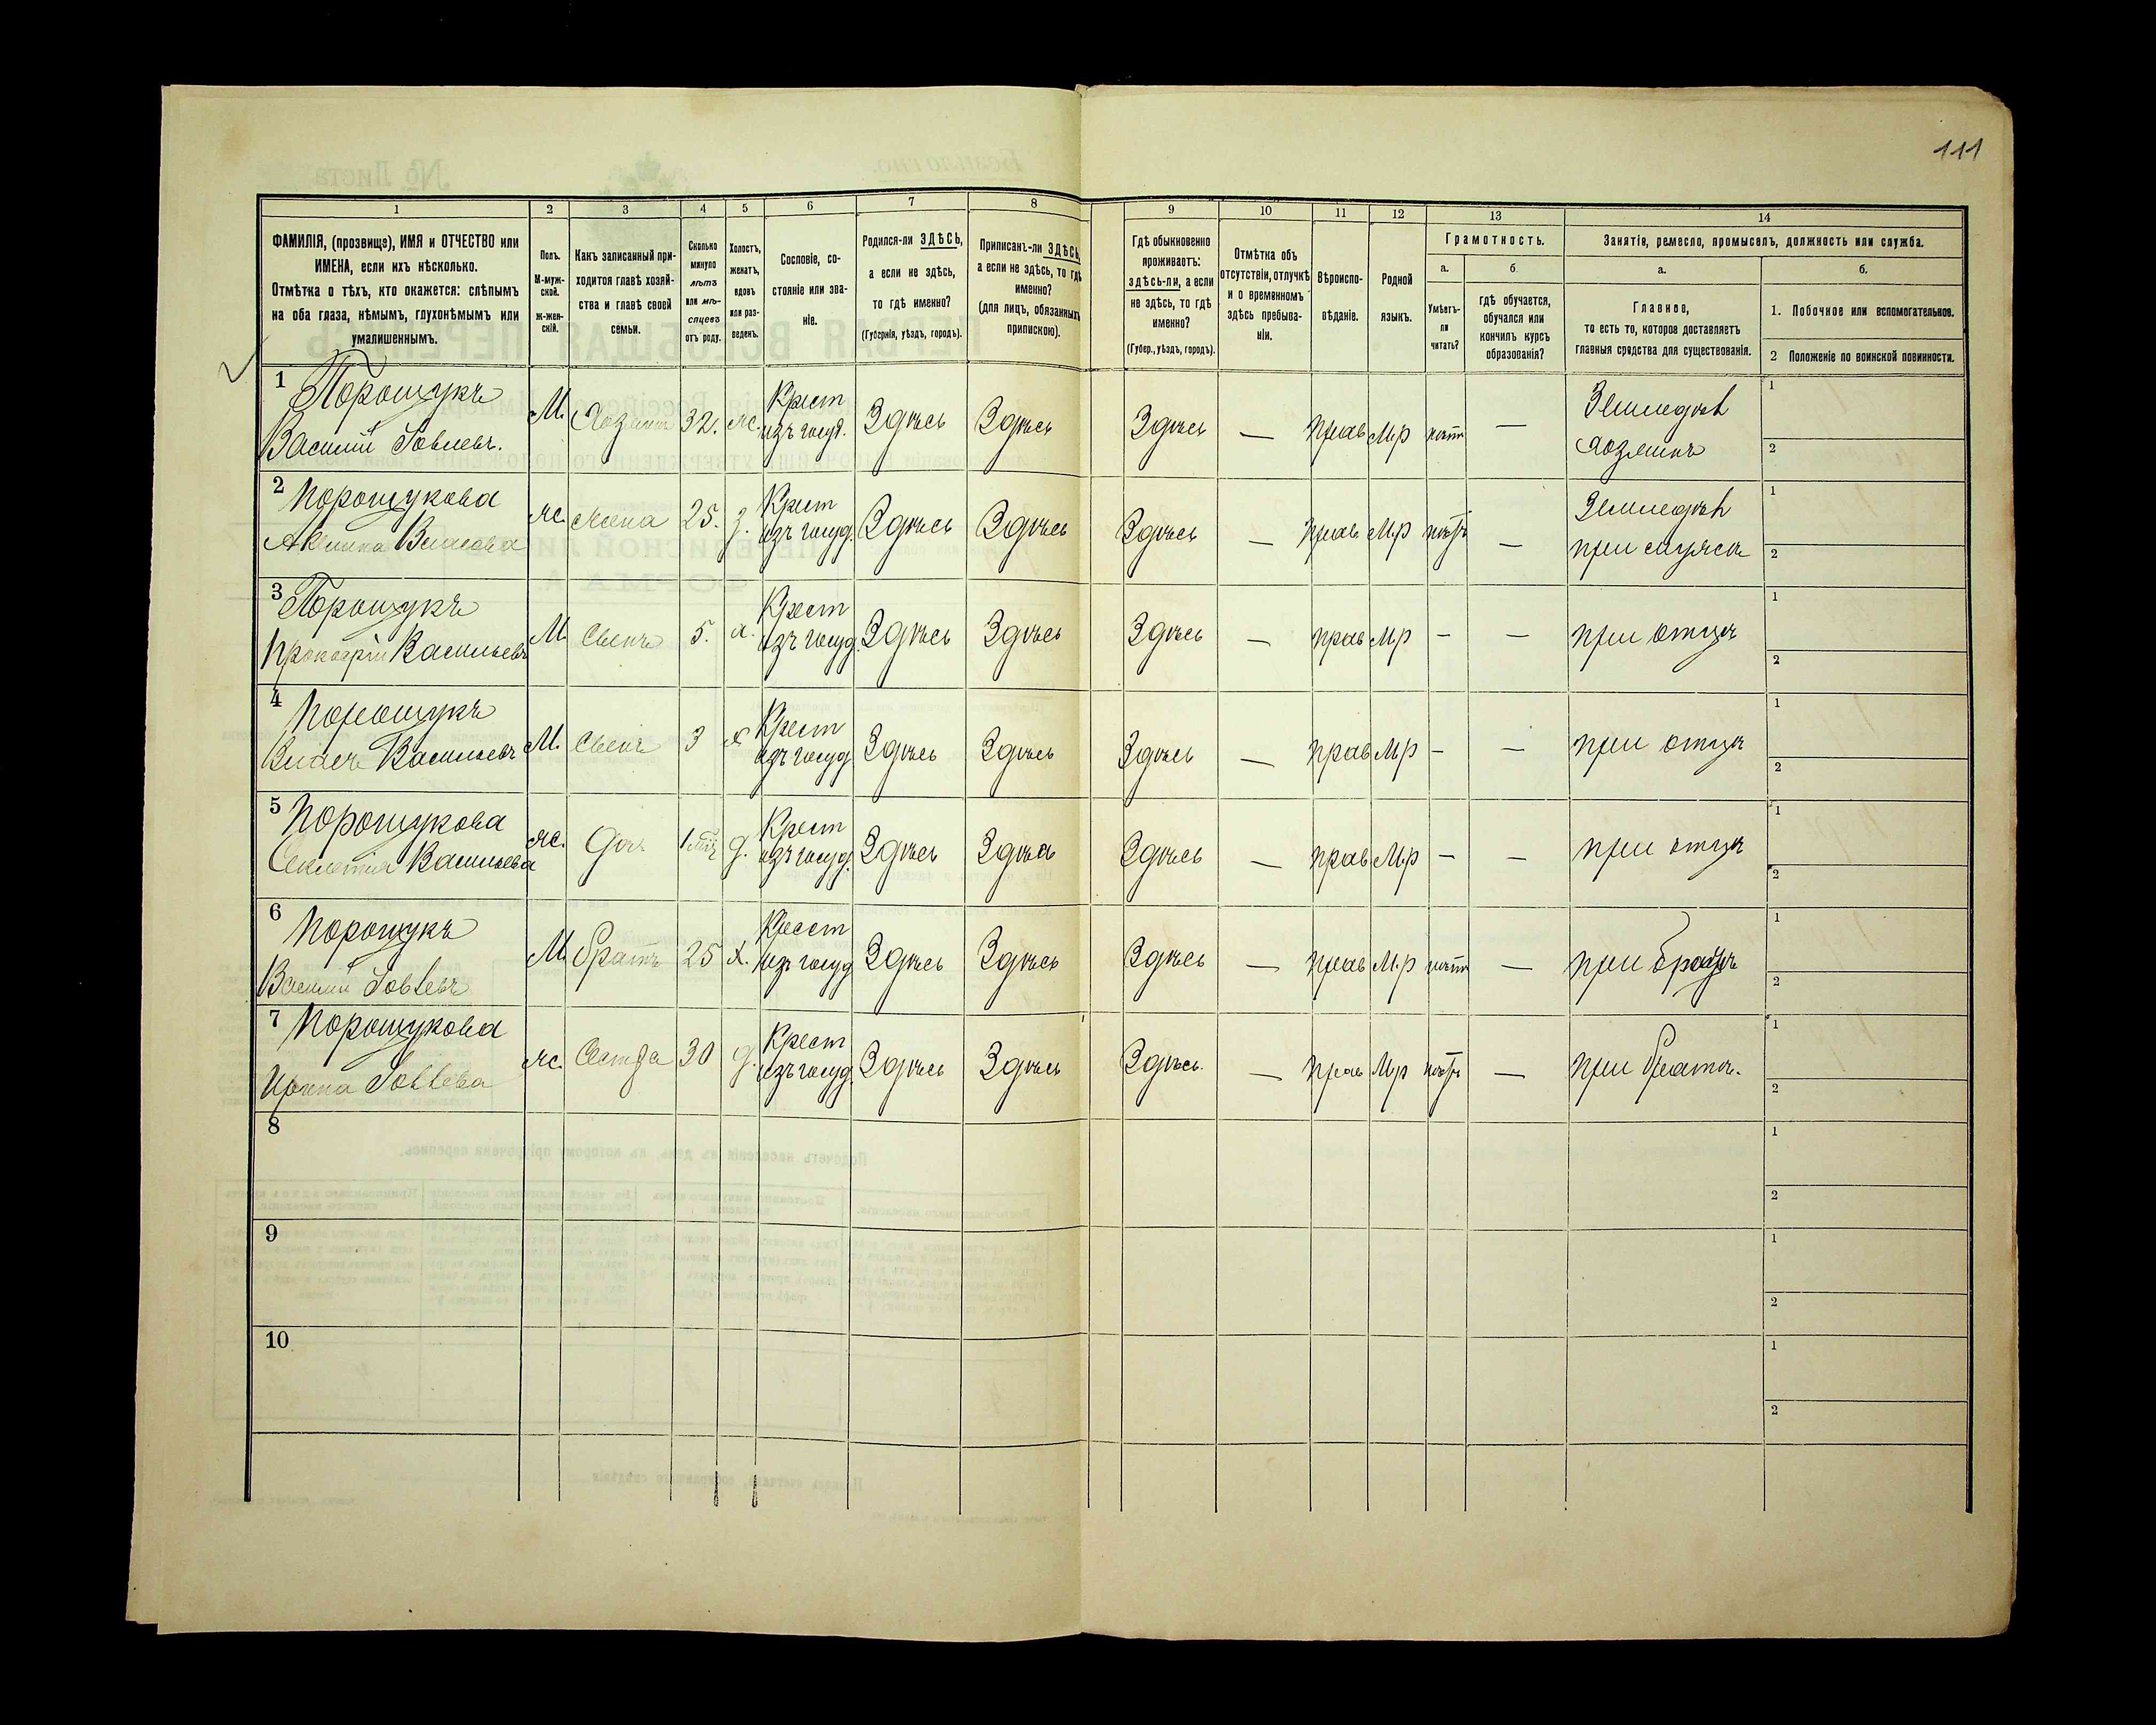 111
1 2 3 4 5 6 7 8 9 10 11 12 13 14
ФАМИЛІЯ, (прозвище), ИМЯ и ОТЧЕСТВО или
ИМЕНА, если ихъ нѣсколько.
Отмѣтка о тѣхъ, кто окажется: слѣпымъ
на оба глаза, нѣмымъ, глухонѣмымъ или
умалишеннымъ.
Полъ.
М-муж-
ской.
Ж-жен-
скій.
Какъ записанный при-
ходится главѣ хозяй-
ства и главѣ своей
семьи.
Сколько
минуло
лѣтъ
или мѣ-
сяцевъ
отъ роду.
Холостъ,
женатъ,
вдовъ
или раз-
веденъ.
Сословіе, со-
стояніе или зва-
ніе.
Родился-ли ЗДѢСЬ,
а если не здѣсь,
то гдѣ именно?
(Губернія, уѣздъ, городъ).
Приписанъ-ли ЗДѢСЬ,
а если не здѣсь, то гдѣ
именно?
(для лицъ, обязанныхъ
припискою).
Гдѣ обыкновенно
проживаетъ:
здѣсь-ли, а если
не здѣсь, то гдѣ
именно?
(Губер., уѣздъ, городъ).
Отмѣтка объ
отсутствіи, отлучкѣ
и о временномъ
здѣсь пребыва-
ніи.
Вѣроиспо-
вѣданіе.
Родной
языкъ.
Грамотность.
а.
Умѣетъ-
ли
читать?
б.
гдѣ обучается,
обучался или
кончилъ курсъ
образованія?
Занятіе, ремесло, промыселъ, должность или служба.
а.
Главное,
то есть то, которое доставляетъ
главныя средства для существованія.
б.
1. Побочное или вспомогательное.
2 Положеніе по воинской повинности.
1 Порощукъ М. Хозяинъ 32. ж. Крест Здѣсь Здѣсь Здѣсь — прав М.р нѣтъ — Земледѣл 1
Василій Іовлевъ. изъ госуд. хозяинъ 2
2 Порощукова ж. жена 25. з. Крест Здѣсь Здѣсь Здѣсь — прав М.р нѣтъ — Земледѣл 1
Акилина Власова изъ госуд. при мужѣ 2
3 Порощукъ М. Сынъ 5. х. Крест Здѣсь Здѣсь Здѣсь — прав М.р — — при отцѣ 1
Прокофій Васильевъ изъ госуд. 2
4 Порощукъ М. Сынъ 3 х Крест Здѣсь Здѣсь Здѣсь — прав М.р — — при отцѣ 1
Власъ Васильевъ изъ госуд 2
5 Порощукова ж. Доч. д. Крест Здѣсь Здѣсь Здѣсь — прав М.р — — при отцѣ 1
Секлетія Васильева изъ госуд. 2
6 Порощукъ М. братъ 25 х. Крест Здѣсь Здѣсь Здѣсь — прав М.р нѣтъ — при братѣ 1
Василій Іовлевъ изъ госуд 2
7 Порощукова ж. Сестра 30 д. Крест Здѣсь Здѣсь Здѣсь. — прав М.р нѣтъ — при братѣ. 1
Ирина Іовлева изъ госуд. 2
8 1
2
9 1
2
10 1
2